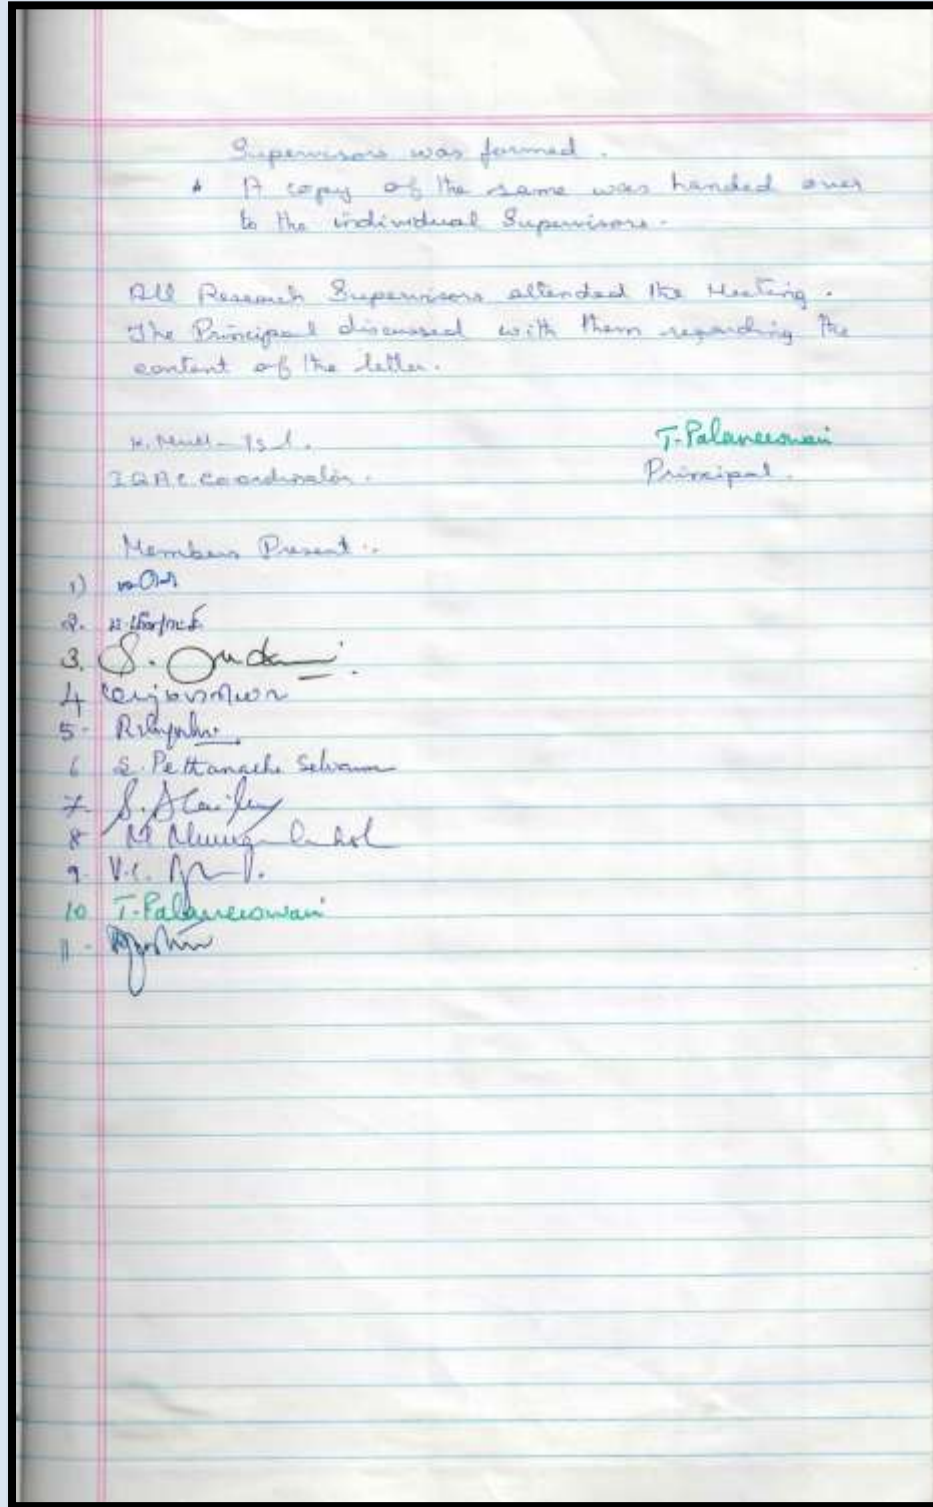 Supervisors was formed.
* A copy of the same was handed over
to the individual Supervisors.
All Research Supervisors attended the Meeting.
The Principal discussed with them regarding the
content of the letter.
T. Palaneeswari
IQAC Coordinator. Principal.
Members Present :.
1)
2.
3. S.
4
5.
6 S. Pettanachi Selvam
7. S.
8 M
9. V.C.
10 T. Palaneeswari
11.